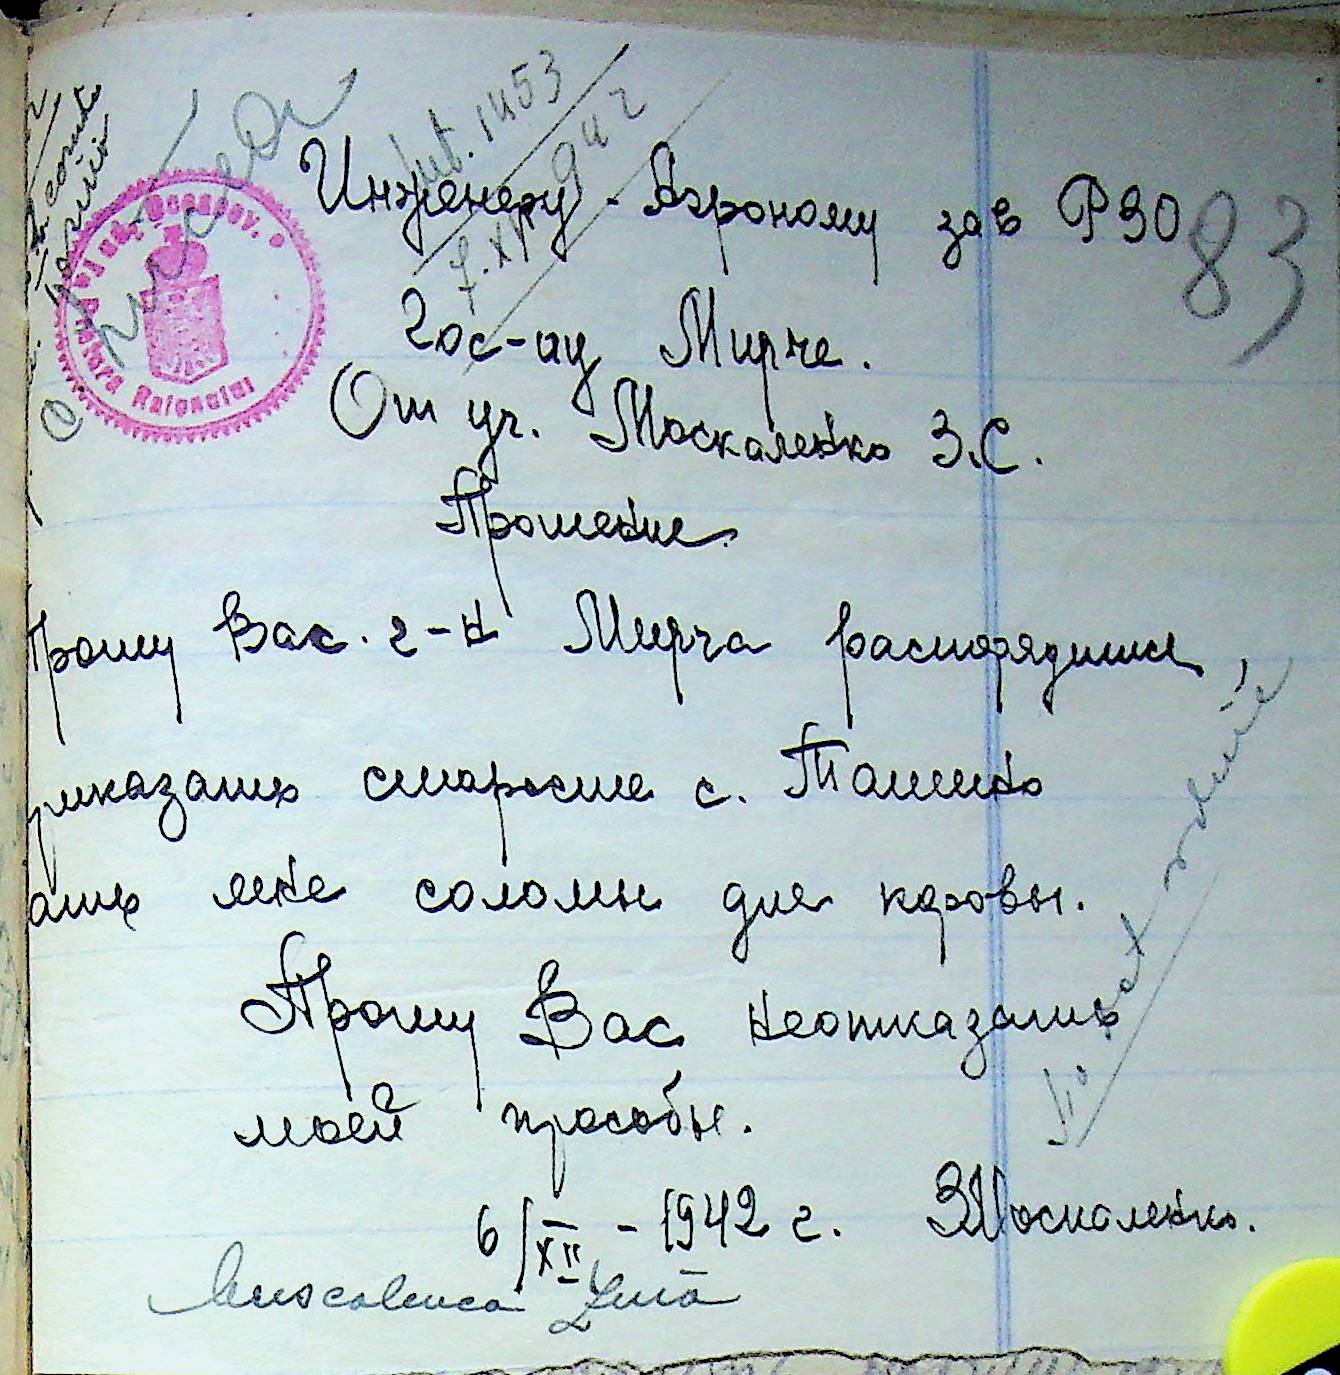 Int. 1453
7.XII 942
83
Инженеру-Агроному зав РЗО
Гос-ну Мирче.
От уч. Москаленко З.С.
Прошение.
Прошу Вас. г-н Мирча распорядится,
приказать старосте с. Ташино
ать мне соломы для коровы.
Прошу Вас неотказать
моей прособы.
6/XII - 1942 г. ЗМоскаленко.
Muscalenco Zina
Raionului